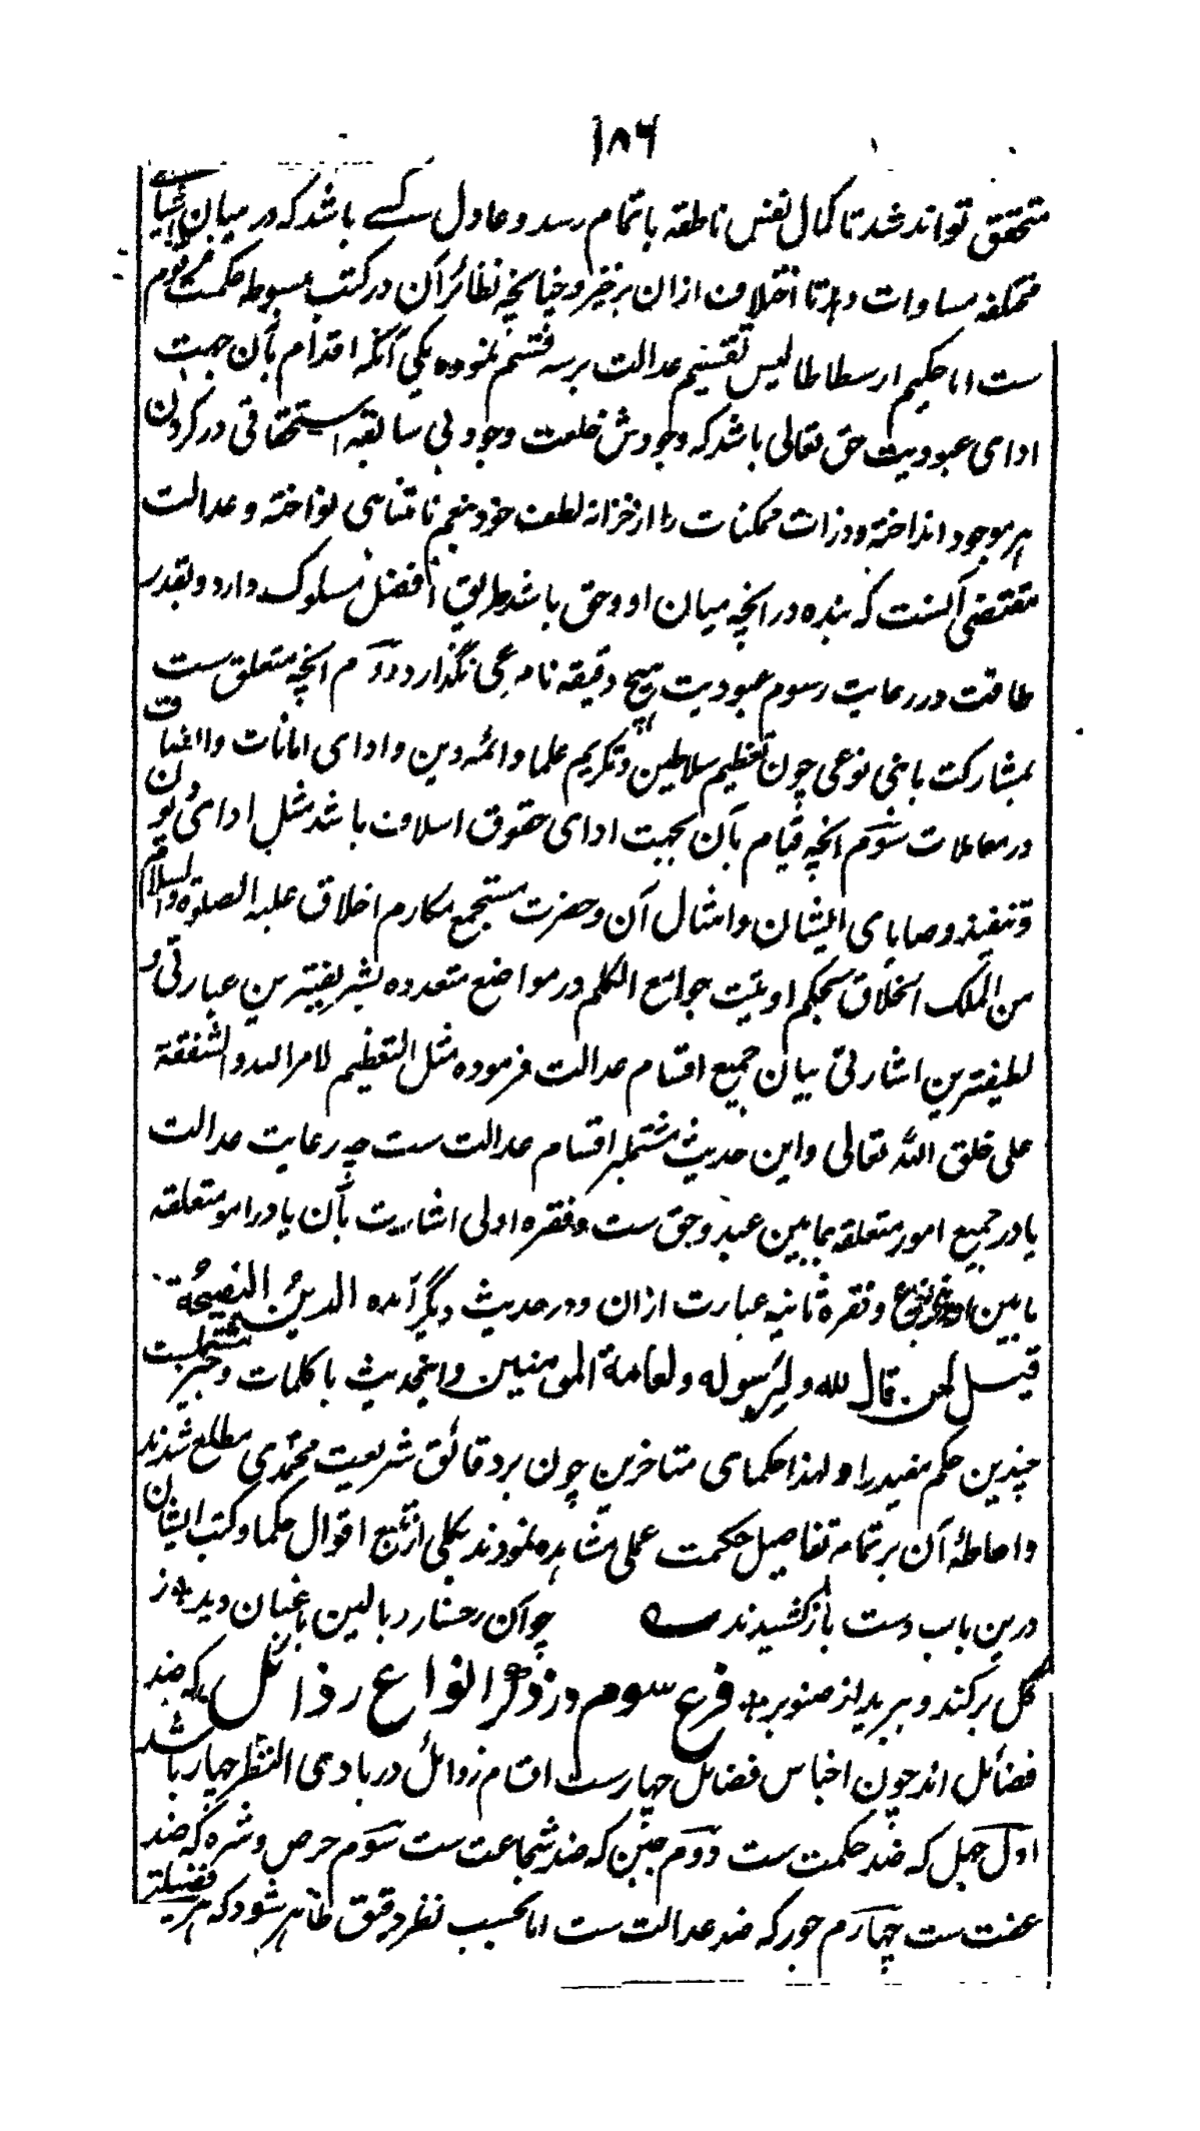 ۱۸۶
متحقق تواند شد تا کمال نفس ناطقه باتمام رسد و عادل کسے باشد که در میان اشیاے
مختلفه مساوات دهد تا اختلاف ازان برخیزد چنانچه نظائر آن در کتب مبسوطه حکمت مرقوم
ست اما حکیم ارسطاطالیس تقسیم عدالت بر سه قسم نموده یکی آنکه اقدام بآن جهت
ادای عبودیت حق تعالی باشد که وجودش خلعت وجود بی سابقه استحقاقی در گردن
هر موجود انداخته و ذرات ممکنات را از خزانه لطف خود بنعم نامتناهی نواخته و عدالت
مقتضی آنست که بنده در انچه میان او و حق باشد طریق افضل مسلوک دارد و بقدر
طاقت در رعایت رسوم عبودیت هیچ دقیقه نامرعی نگذارد دوم انچه متعلق ست
بمشارکت با بنی نوعی چون تعظیم سلاطین و تکریم علما و ائمه دین و ادای امانات و انصاف
در معاملات سوم انچه قیام بآن بجهت ادای حقوق اسلاف باشد مثل ادای دیون
و تنفیذ وصایای ایشان و امثال آن و حضرت مستجمع مکارم اخلاق علیه الصلوة والسلام
من الملک الخلاق بحکم اوتیت جوامع الکلم در مواضع متعدده بشریفترین عبارتی و
لطیفترین اشارتی بیان جمیع اقسام عدالت فرموده مثل التعظیم لامر الله و الشفقة
علی خلق الله تعالی و این حدیث مشتمل بر اقسام عدالت ست چه رعایت عدالت
یا در جمیع امور متعلقه بمابین عبد و حق ست و فقره اولی اشارت بآن یا در امور متعلقه
مابین نوع و فقرهٔ ثانیه عبارت ازان و در حدیث دیگر آمده الدین النصیحة
قیل لمن قال لله و لرسوله و لعامة المومنین و اینحدیث با کلمات وجیز مشتملست
چندین حکم مفید را و لهذا حکمای متاخرین چون بر دقائق شریعت محمدی مطلع شدند
و احاطهٔ آن بر تمام تفاصیل حکمت عملی مشاهده نمودند بکلی از تتبع اقوال حکما و کتب ایشان
درین باب دست باز کشیدند چو آن رخسار و بالین باغبان دید * ز
گل برکند و ببرید از صنوبر * فرع سوم در ذکر انواع رذائل که ضد
فضائل اند چون اجناس فضائل چهارست اقسام رذائل در بادی النظر چهار باشد
اول جهل که ضد حکمت ست دوم جبن که ضد شجاعت ست سوم حرص و شره که ضد
عفت ست چهارم جور که ضد عدالت ست اما بحسب نظر دقیق ظاهر شود که هر فضیلتے